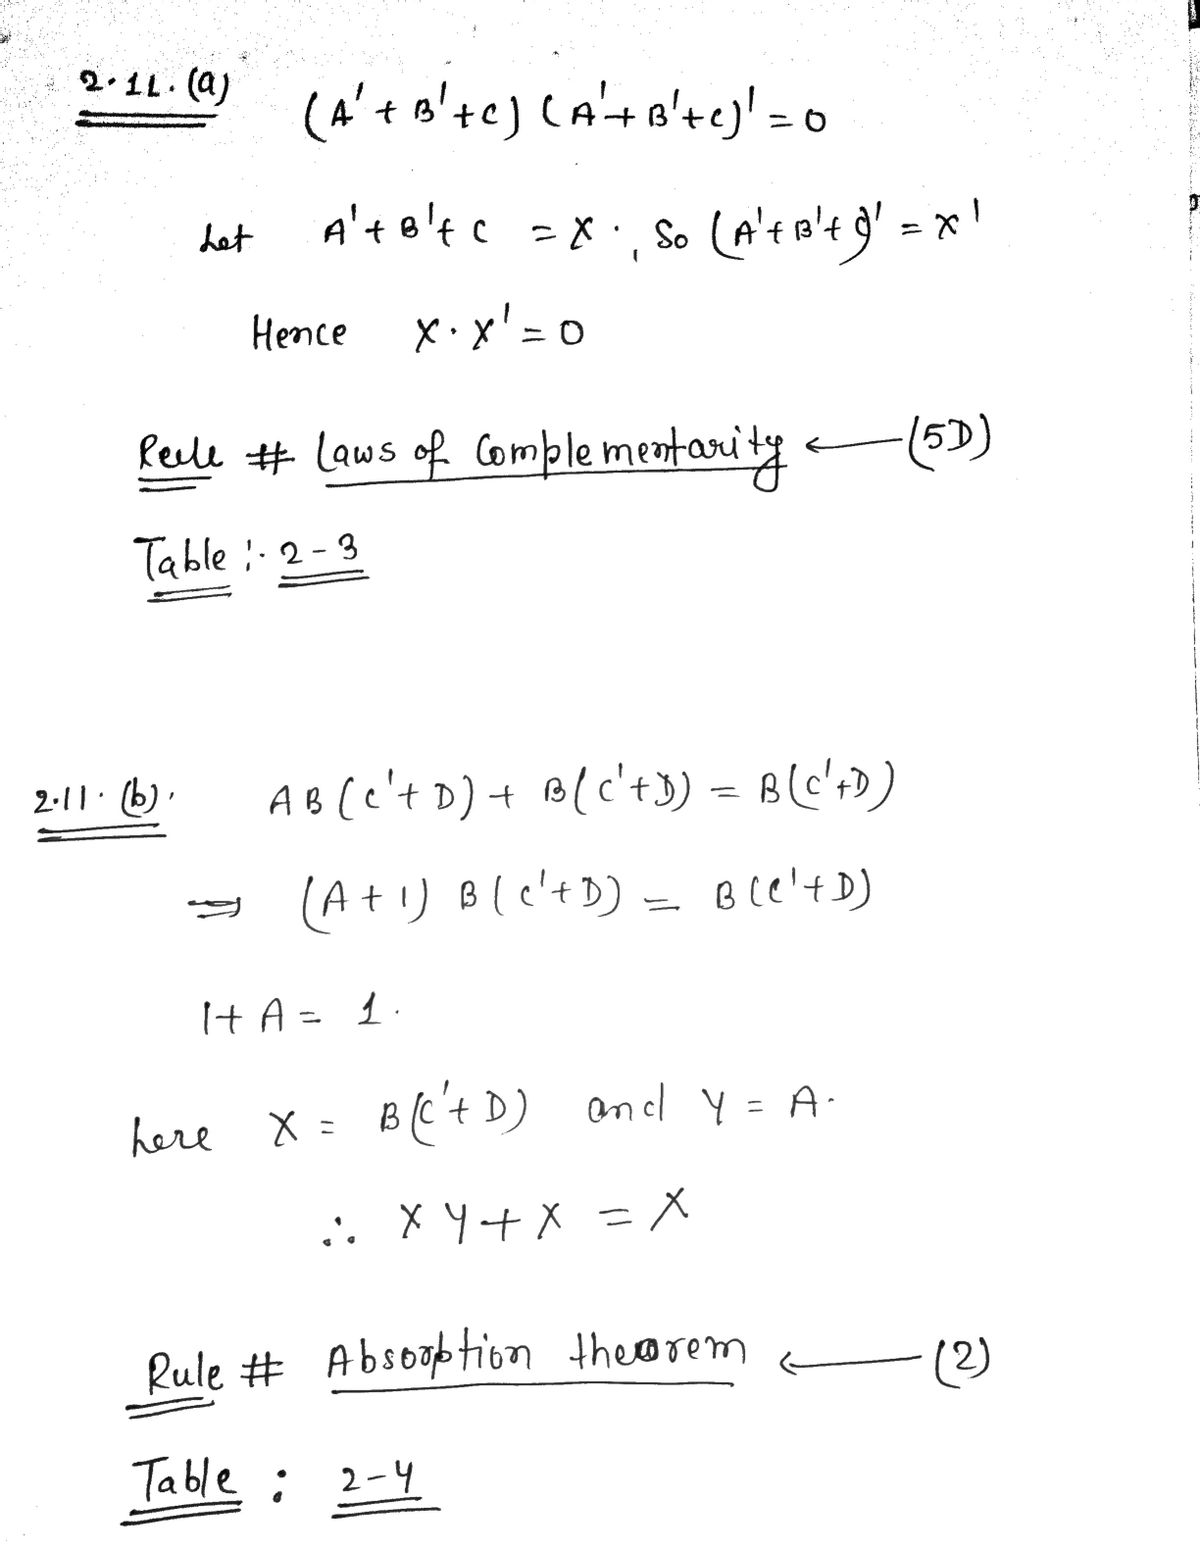 2.11. (a) (A' + B' + C) (A' + B' + C)' = 0
Let A' + B' + C = X ., So (A' + B' + C)' = X'
Hence X . X' = 0
Rule # Laws of Complementarity ← (5D)
Table :. 2 - 3
2.11. (b). AB (C' + D) + B (C' + D) = B (C' + D)
⇒ (A + 1) B (C' + D) = B (C' + D)
1 + A = 1.
here X = B (C' + D) and Y = A.
∴ XY + X = X
Rule # Absorption theorem ← (2)
Table : 2 - 4